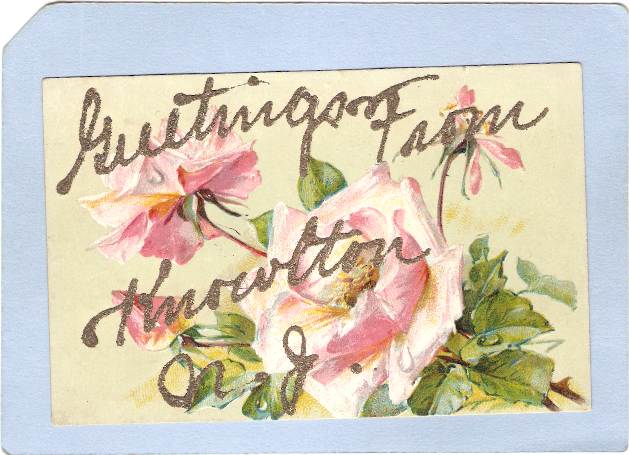 Greetings From
Knowlton
N. J.